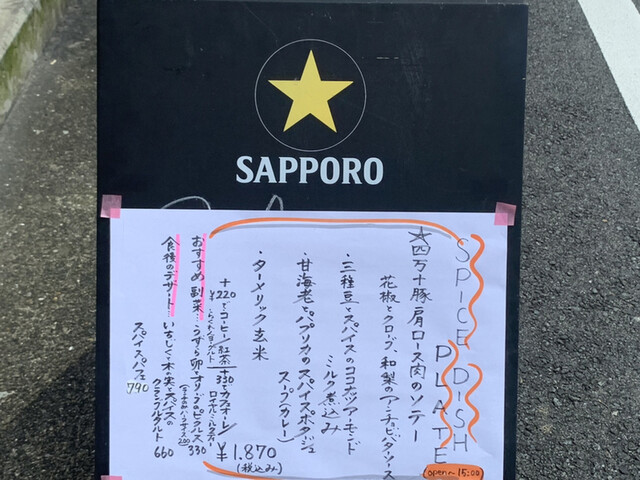 SAPPORO
SPICE DISH
PLATE
open~15:00
★四万十豚肩ロース肉のソテー
花椒とクローブ、和梨のアンチョビソース
・三種豆とスパイスのココナッツアーモンド
ミルク煮込み
・甘海老とパプリカのスパイスポタージュ
スープ(カレー)
・ターメリック玄米
¥1.870
(税込み)
+¥220でコーヒー、紅茶
+330でカフェオーレ
ロイヤルミルクティー
おすすめ副菜…うずら卵
ピクルス
330
食後のデザート…いちじく・木の実とスパイスの
クランブルタルト
660
スパイスパフェ
790